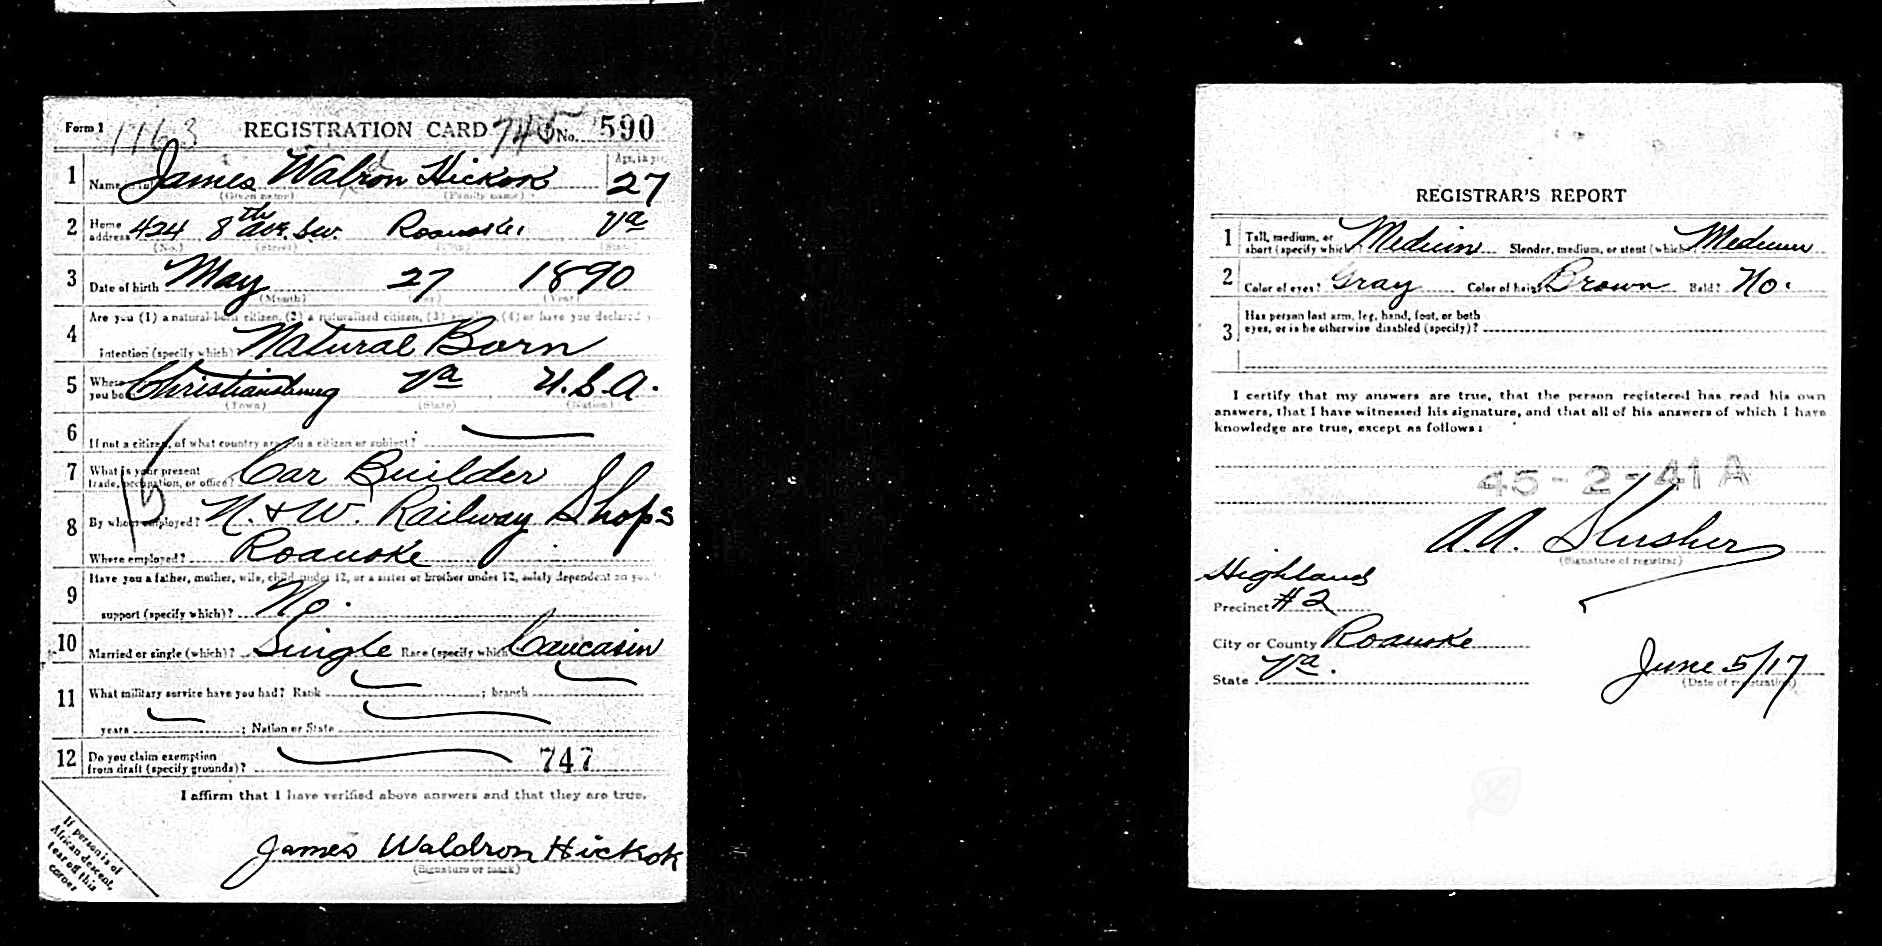 Form 1 1763 REGISTRATION CARD 745 No. 590
1 Name James Walron Hickok Age, in yrs 27
(Given name) (Family name)
2 Home address 424 8th ave. S.W. Roanoke, Va
(No.) (Street) (City) (State)
3 Date of birth May 27 1890
(Month) (Day) (Year)
4 Are you (1) a natural-born citizen, (2) a naturalized citizen, (3) an alien, (4) or have you declared your
intention (specify which)? Natural Born
5 Where you born Christiansburg Va U.S.A.
(Town) (State) (Nation)
6 If not a citizen, of what country are you a citizen or subject?
7 What is your present trade, occupation, or office? Car Builder
8 By whom employed? N. & W. Railway Shops
Where employed? Roanoke
9 Have you a father, mother, wife, child under 12, or a sister or brother under 12, solely dependent on you for
support (specify which)? No.
10 Married or single (which)? Single Race (specify which) Caucasin
11 What military service have you had? Rank ; branch
years ; Nation or State
12 Do you claim exemption
from draft (specify grounds)? 747
I affirm that I have verified above answers and that they are true.
James Waldron Hickok
(Signature or mark)
If person is of
African descent,
tear off this
corner
REGISTRAR'S REPORT
1 Tall, medium, or
short (specify which)? Medium Slender, medium, or stout (which) Medium
2 Color of eyes? Gray Color of hair Brown Bald? No.
3 Has person lost arm, leg, hand, foot, or both
eyes, or is he otherwise disabled (specify)?
I certify that my answers are true, that the person registered has read his own
answers, that I have witnessed his signature, and that all of his answers of which I have
knowledge are true, except as follows:
45-2-41 A
A.A. Slusher
(Signature of registrar)
Highland
Precinct #2
City or County Roanoke
State Va.
June 5/17
(Date of registration)